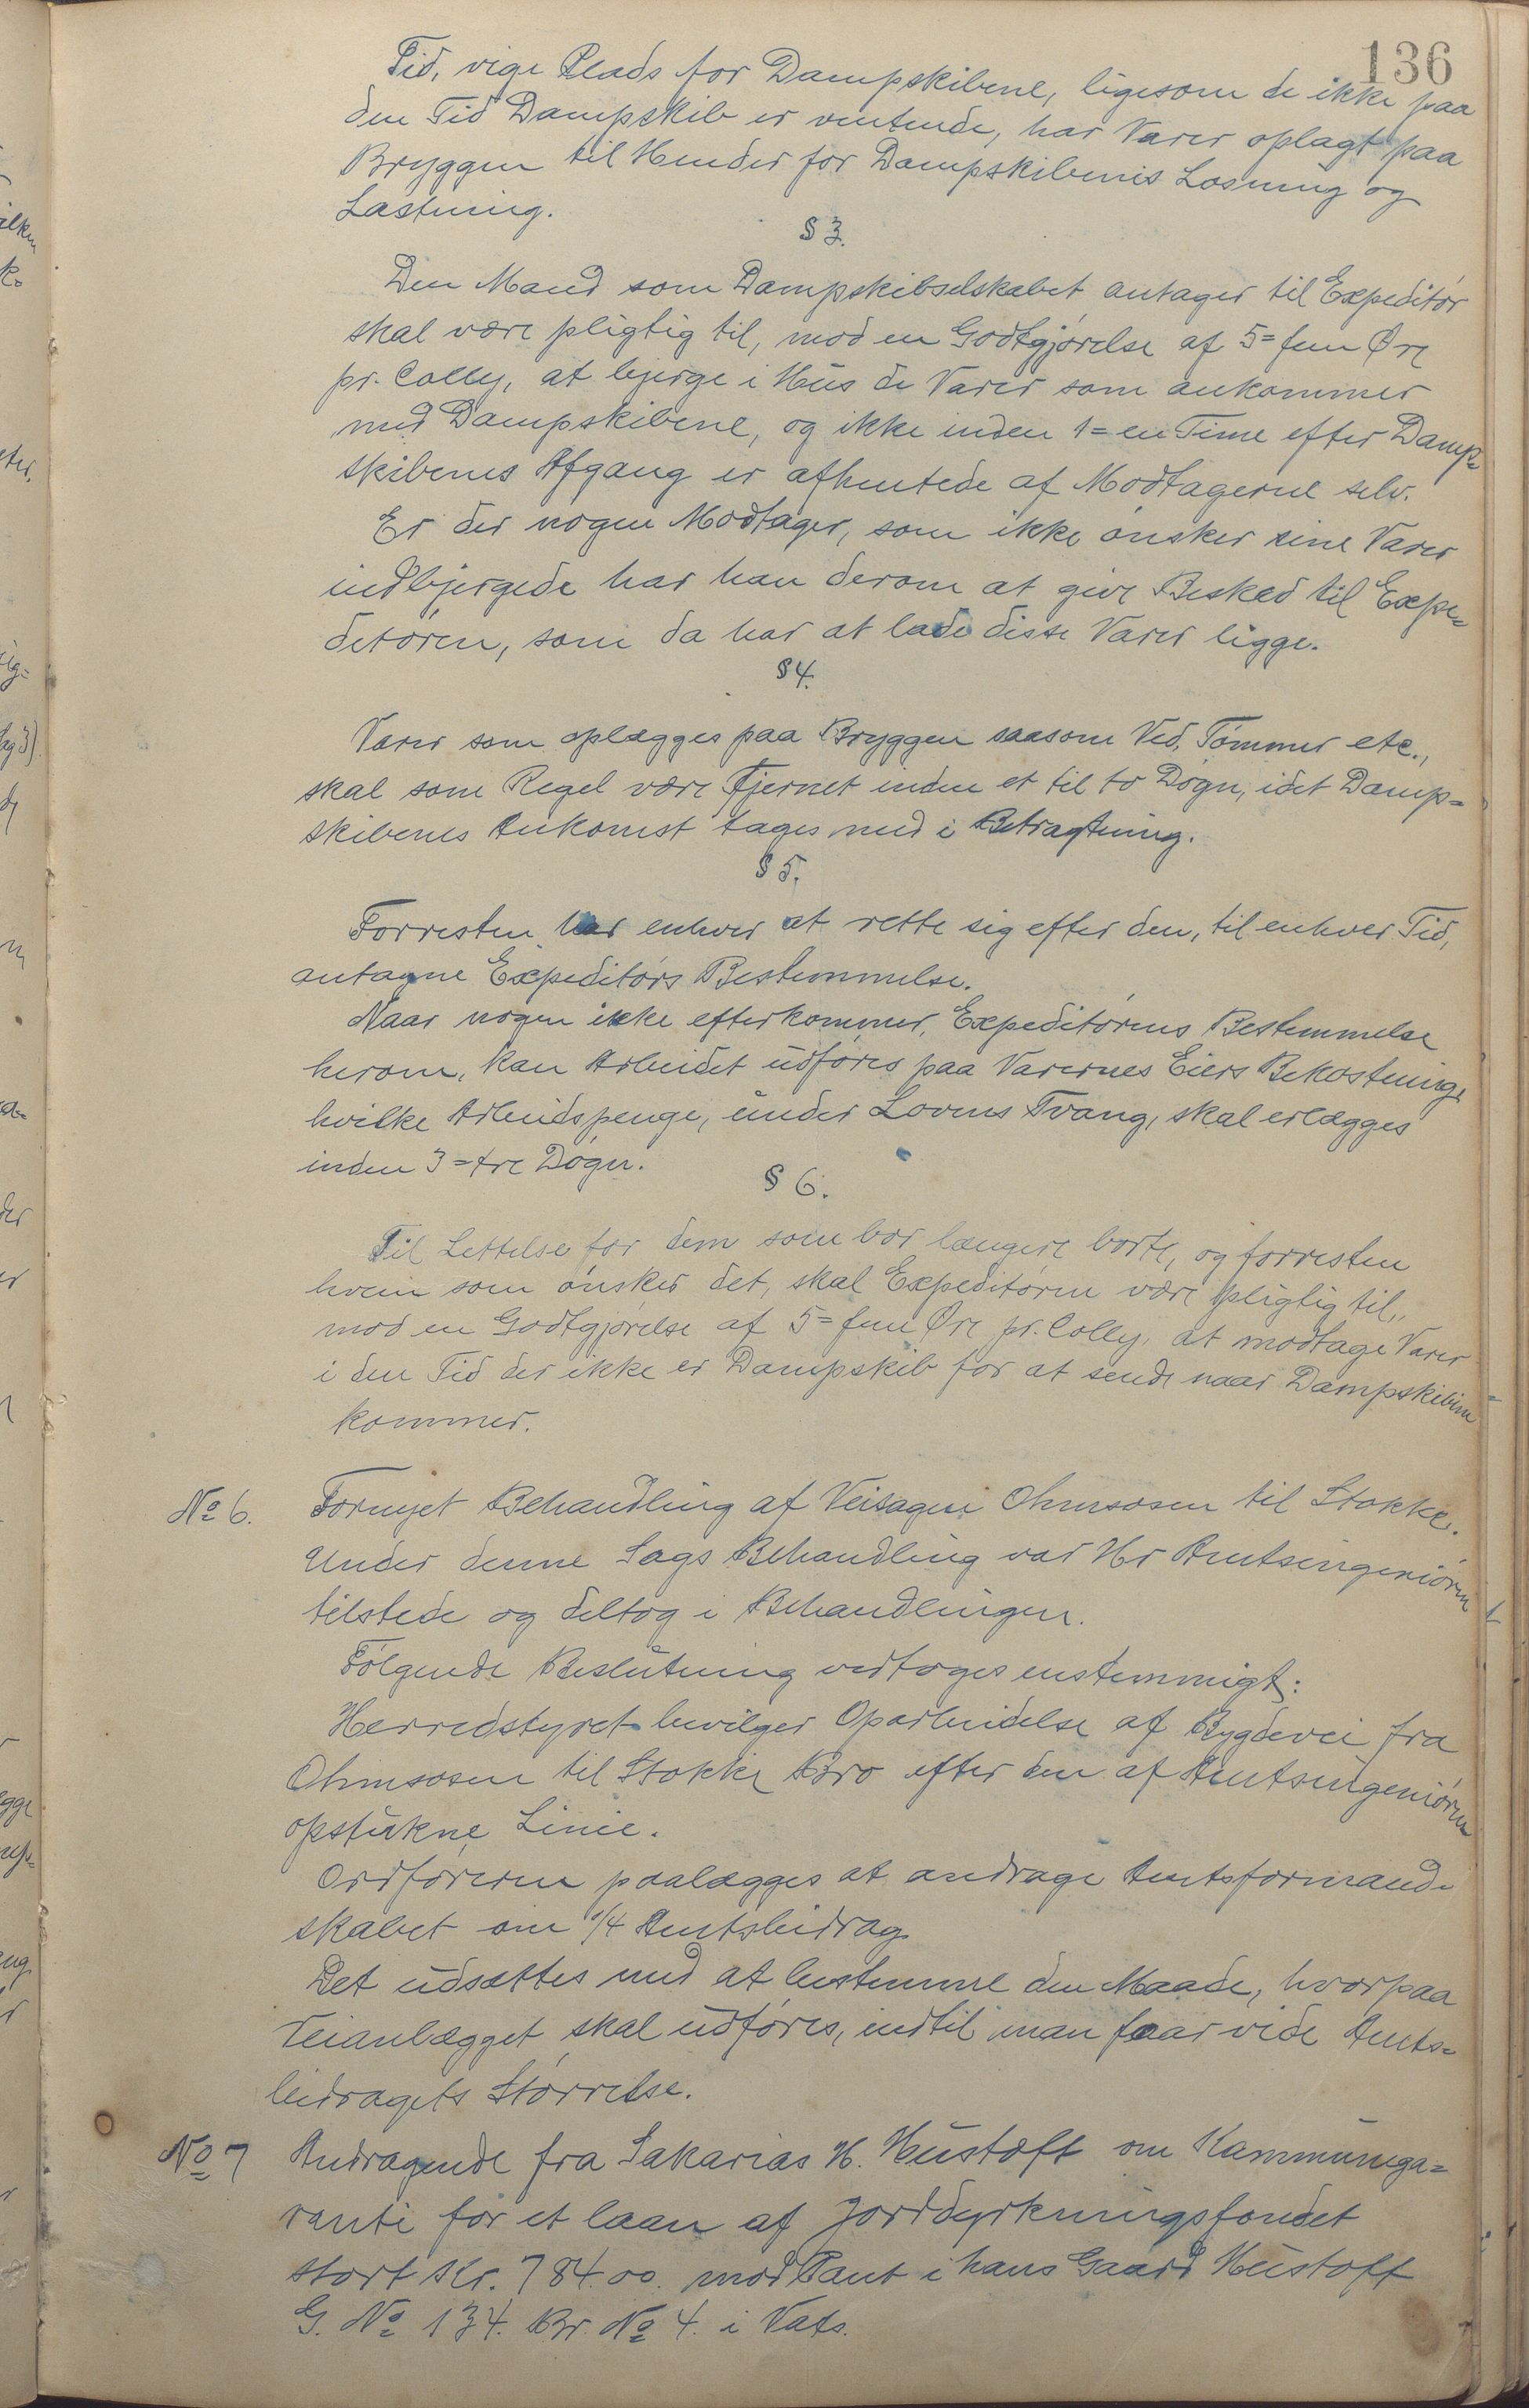 136
Tid, vige Plads for Dampskibene, ligesom de ikke paa
den Tid Dampskib er ventende, har Varer oplagt paa
Bryggen til Hinder for Dampskibenes Losning og
Lastning.
§ 3.
Den Mand som Dampskibselskabet antager til Expeditør
skal være pligtig til, mod en Godtgjørelse af 5 = fem Øre
pr. Colly, at bjerge i Hus de Varer som ankommer
med Dampskibene, og ikke inden 1 = en Time efter Damp=
skibenes Afgang er afhentede af Modtagerne selv.
Er der nogen Modtager, som ikke ønsker sine Varer
indbjergede har han derom at give Besked til Expe=
detøren, som da har at lade disse Varer ligge.
§ 4.
Varer som oplægges paa Bryggen saasom Ved, Tømmer etc.,
skal som Regel være fjernet inden et til to Døgn, idet Damp=
skibenes Ankomst tages med i Betragtning.
§ 5.
Forresten har enhver at rette sig efter den, til enhver Tid,
antagne Expeditørs Bestemmelse.
Naar nogen ikke efterkommer, Expeditørens Bestemmelse
herom, kan Arbeidet udføres paa Varernes Eiers Bekostning,
hvilke Arbeidspenge, under Lovens Tvang, skal erlægges
inden 3 = tre Døgn.
§ 6.
Til Lettelse for dem som bor længere borte, og forresten
hvem som ønsker det, skal Expeditøren være pligtig til,
mod en Godtgjørelse af 5 = fem Øre pr. Colly, at modtage Varer
i den Tid der ikke er Dampskib for at sende naar Dampskibene
kommer.
No 6. Fornyet Behandling af Veisagen Ohmsosen til Stokke.
Under denne Sags Behandling var Hr Amtsingeniøren
tilstede og deltog i Behandlingen.
Følgende Beslutning vedtoges enstemmigt:
Herredstyret bevilger Oparbeidelse af Bygdevei fra
Ohmsosen til Stokke Bro efter den af Amtsingeniøren
opstukne Linie.
Ordføreren paalægges at andrage Amtsformand=
skabet om 1/4 Amtsbidrag.
Det udsættes med at bestemme den Maade, hvorpaa
Veianlægget skal udføres, indtil man faar vide Amts=
bidragets Størrelse.
No 7 Andragende fra Sakarias H. Hustoft om Kommunega=
ranti for et laan af Jorddyrkningsfondet
stort Kr. 784.00. mod Pant i hans Gaard Hustoft
G. No 134. Br. No 4. i Vats.